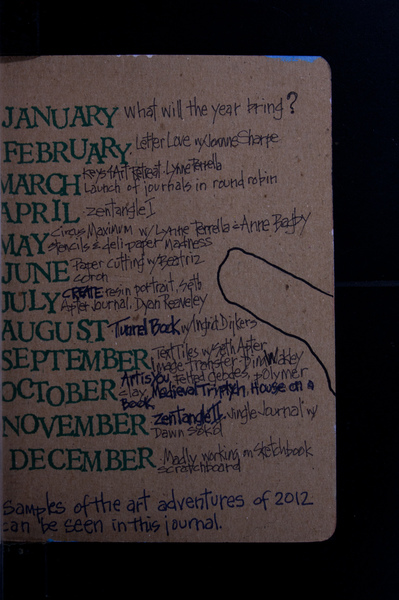 JANUARY What will the year bring?
FEBRUARY Letter Love w/Joanne Sharpe
MARCH Keys 4 Art Retreat. Lynne Perrella
Launch of journals in round robin
APRIL Zentangle I
MAY Circus Maximum w/ Lynne Perrella & Anne Bagby
stencils & deli-paper madness
JUNE Paper cutting w/Beatriz
Coron
JULY CREATE resin portrait, Seth
Apter Journal, Dyan Reaveley
AUGUST Tunnel Book w/ Ingrid Dijkers
SEPTEMBER TextTiles w/Seth Apter
Image Transfer-
OCTOBER Art is You, Felted Geodes, polymer
clay, Medieval Triptych, House on a
Book
NOVEMBER Zentangle II Jungle Journal w/
Dawn Sokol
DECEMBER Madly working on Sketchbook
scratchboard
Samples of the art adventures of 2012
can be seen in this journal.